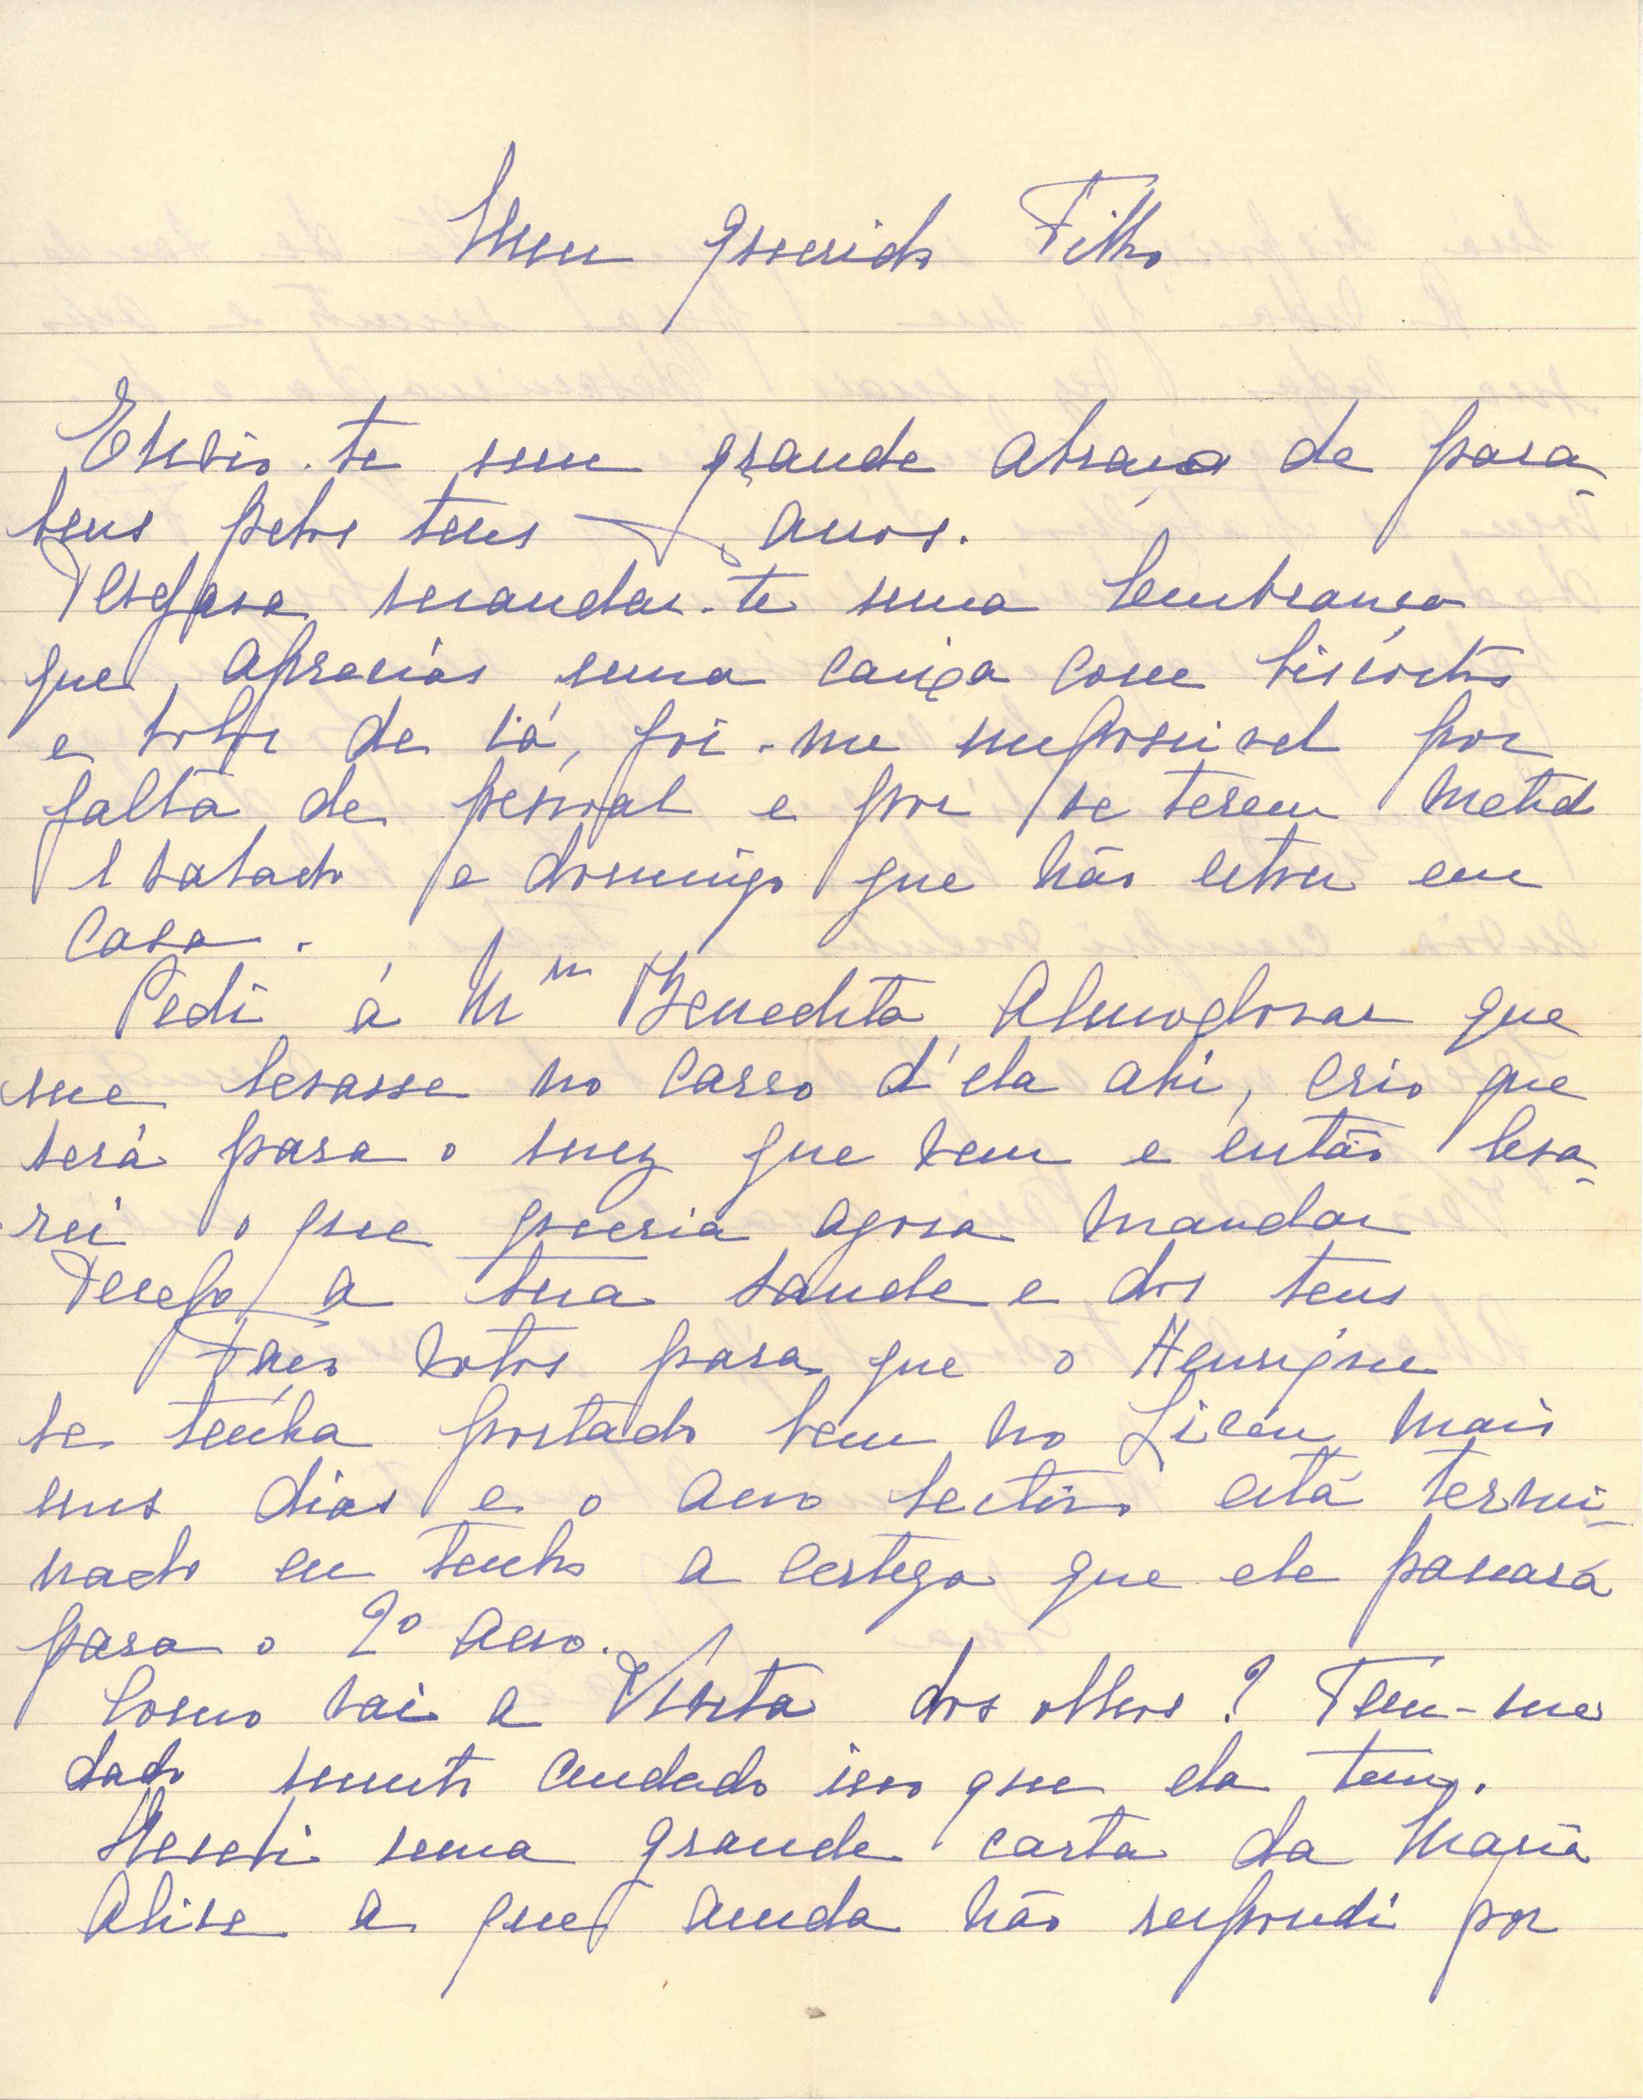 Meu querido Filho
Envio-te um grande abraço de para-
bens pelos teus anos.
Desejava mandar-te uma lembrança
que aprecias uma caixa com biscoitos
e bolos de cá, foi-me impossivel por
falta de pessoal e por se terem metid
o sabado e domingo que não estou em
casa.
Pedi á Benedita que
me levasse no carro d'ela ahi, creio que
será para o mez que vem e então leva-
rei o que queria agora mandar
Desejo a tua saude e dos teus
Faço votos para que o Henrique
se tenha portado bem no Liceu, mais
uns dias e o ano lectivo está termi-
nado eu tenho a certeza que ele passará
para o 2º ano.
Como vai a dos olhos? Tem-me
dado muito cuidado isso que ela tem.
Recebi uma grande carta da Maria
Alice a que ainda não respondi por